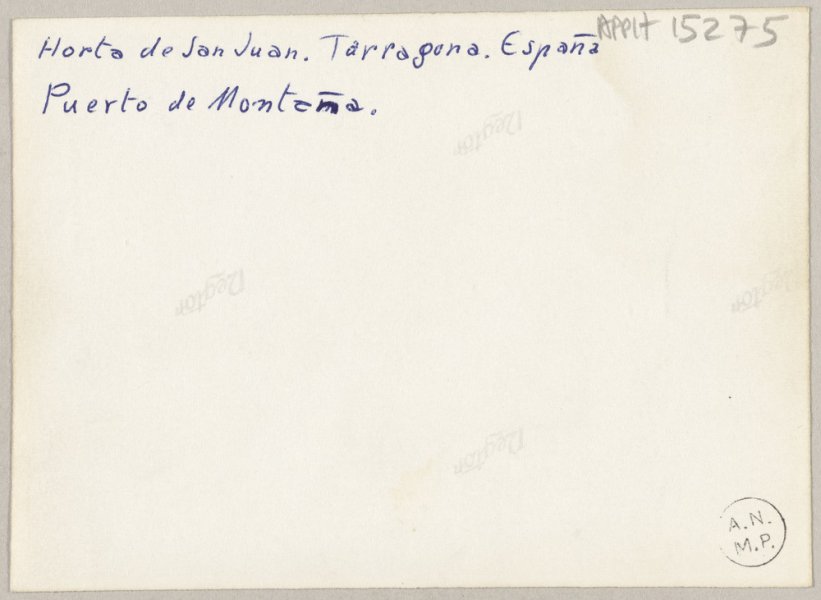 Horta de San Juan. Tarragona. España
APPH 15275
Puerto de Montaña.
Negtor
Negtor
Negtor
Negtor
A.N.
M.P.